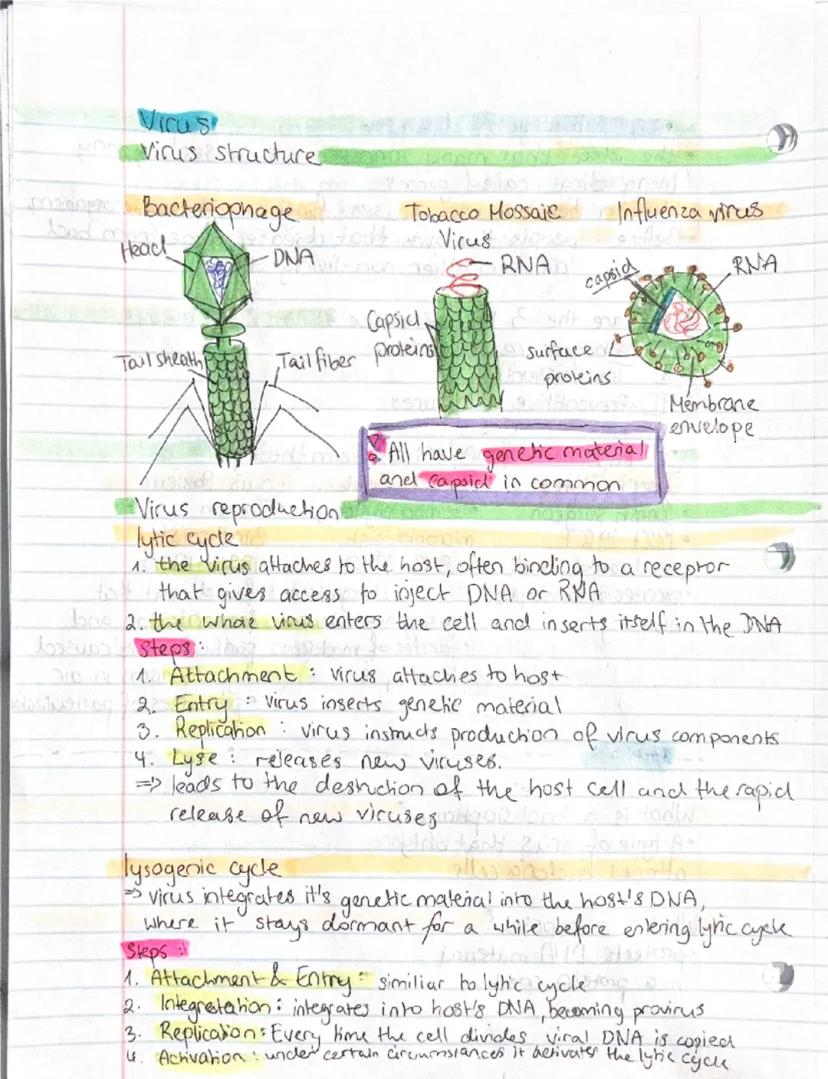 Virus
Virus structure
Bacteriophage
Head
DNA
Tail sheath
Tail fiber
Tobacco Mossaic
Virus
RNA
Capsid
proteins
Influenza virus
capsid
RNA
surface
proteins
Membrane
envelope
! All have genetic material
and capsid in common
Virus reproduction
lytic cycle
1. the virus attaches to the host, often binding to a receptor
that gives access to inject DNA or RNA
2. the whole virus enters the cell and inserts itself in the DNA
Steps:
1. Attachment : virus attaches to host
2. Entry : virus inserts genetic material
3. Replication : virus instructs production of virus components
4. Lyse : releases new viruses.
=> leads to the destruction of the host cell and the rapid
release of new viruses
lysogenic cycle
=> virus integrates it's genetic material into the host's DNA,
where it stays dormant for a while before entering lytic cycle
Steps :
1. Attachment & Entry : similiar to lytic cycle
2. Integretation : integrates into host's DNA, becoming provirus
3. Replication : Every time the cell divides viral DNA is copied
4. Activation : under certain circumstances it activates the lytic cycle